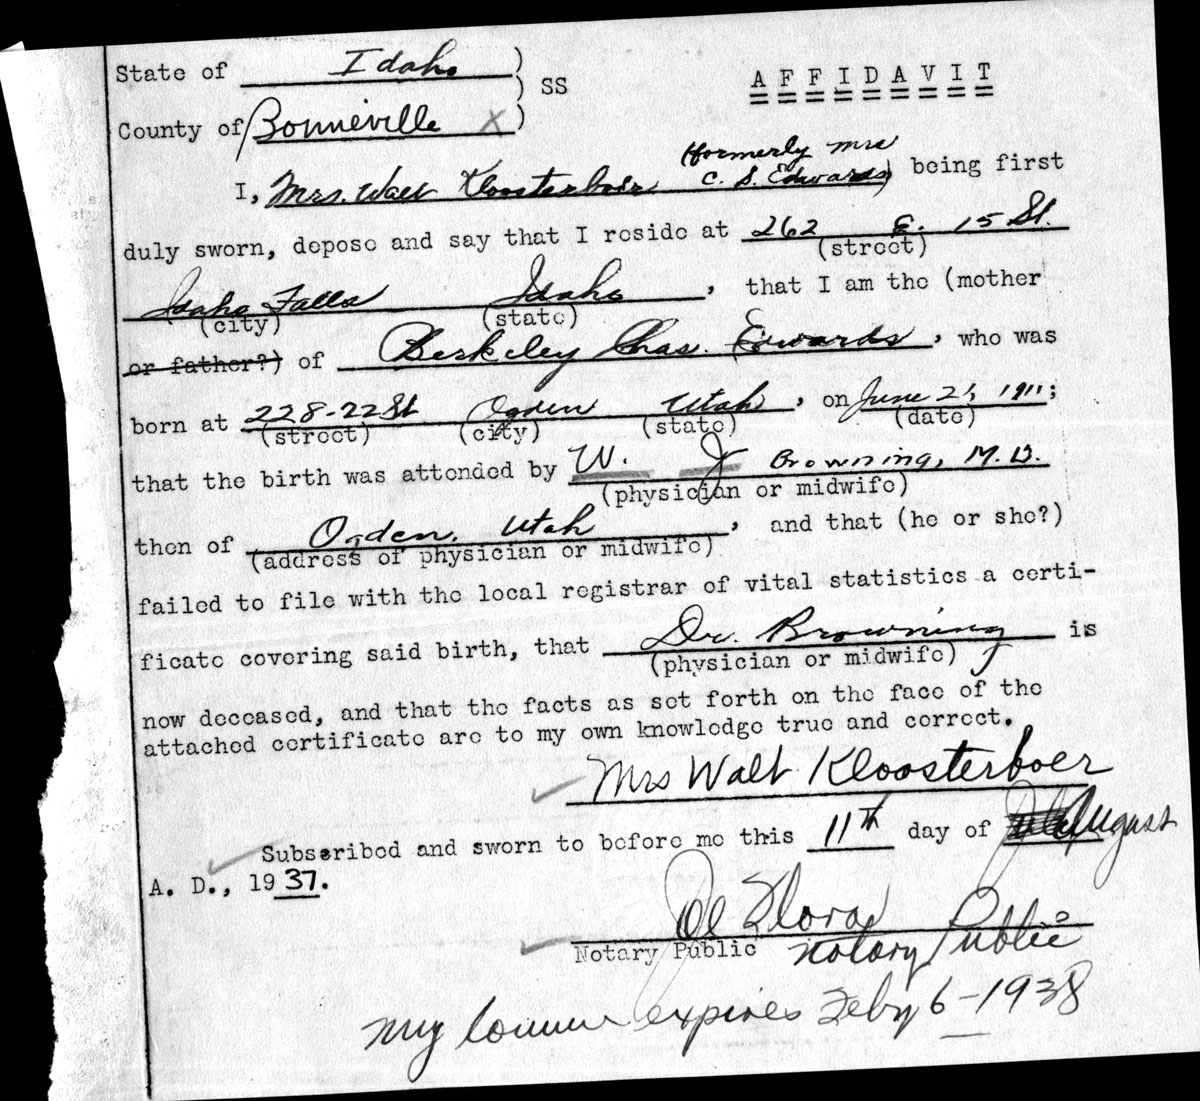 State of Idaho )
) SS AFFIDAVIT
County of Bonneville X )
(formerly mrs
I, Mrs. Walt Kloosterboer C. S. Edwards) being first
duly sworn, depose and say that I reside at 262 E. 15 St.
(street)
Idaho Falls Idaho, that I am the (mother
(city) (state)
or father?) of Berkeley Chas. Edwards, who was
born at 228-22 St Ogden Utah, on June 21, 1911;
(street) (city) (state) (date)
that the birth was attended by W. J Browning, M.D.
(physician or midwife)
then of Ogden, Utah, and that (he or she?)
(address of physician or midwife)
failed to file with the local registrar of vital statistics a certi-
ficate covering said birth, that Dr. Browning is
(physician or midwife)
now deceased, and that the facts as set forth on the face of the
attached certificate are to my own knowledge true and correct.
Mrs Walt Kloosterboer
Subscribed and sworn to before me this 11th day of August
A. D., 1937.
Flora
Notary Public Notary Public
My Comm expires Feby 6-1938